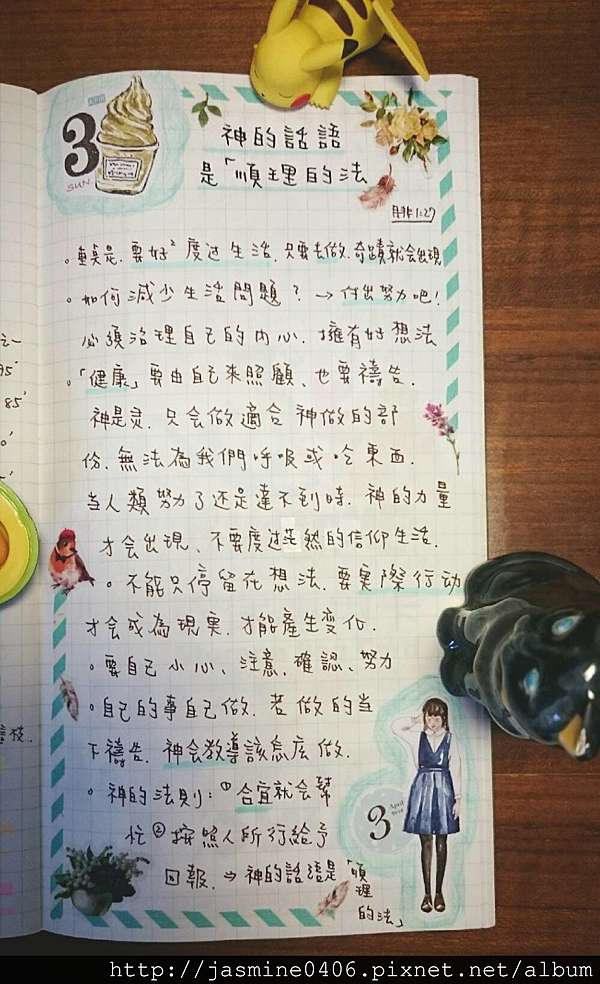 APR
3
SUN
神的話語
是「順理的法
腓1:27
。重點是.要好²度过生活.只要去做.奇蹟就会出現
。如何減少生活問題？→付出努力吧！
必須治理自己的内心.擁有好想法
。「健康」要由自己來照顧、也要禱告.
神是灵.只会做適合神做的部
份.無法為我們呼吸或吃東西.
当人類努力了还是達不到時.神的力量
才会出現、不要度过茫然的信仰生活.
。不能只停留在想法.要実際行动
才会成為現実.才能產生变化.
。要自己小心、注意.確認、努力
。自己的事自己做.若做的当
下禱告.神会教導該怎庅做.
。神的法則：①合宜就会幫
忙②按照人所行給予
回報.→神的話語是「順
理
的法」
3
April
95'
85'
技..
http://jasmine0406.pixnet.net/album